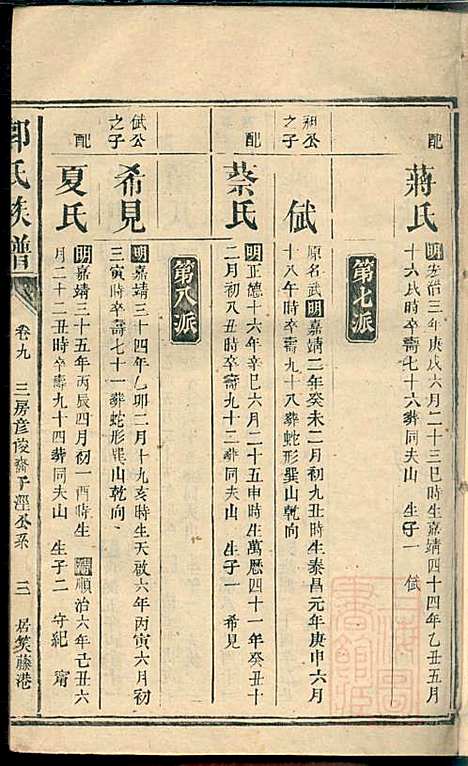 配
蔣氏
明宏治三年庚戌六月二十三巳時生嘉靖四十四年乙丑五月
十六戌時卒壽七十六葬同夫山 生子一 倵
第七派
祖公
之子
倵
原名武明嘉靖二年癸未二月初九丑時生泰昌元年庚申六月
十八午時卒壽九十八葬蛇形巽山乾向
配
蔡氏
明正德十六年辛巳六月二十五申時生萬曆四十一年癸丑十
二月初八丑時卒壽九十三葬同夫山 生子一 希見
第八派
倵公
之子
希見
明嘉靖三十四年乙卯二月十九亥時生天啟六年丙寅六月初
三寅時卒壽七十一葬蛇形巽山乾向
配
夏氏
明嘉靖三十五年丙辰四月初一酉時生清順治六年己丑六
月二十二丑時卒壽九十四葬同夫山 生子二 守紀 甯
郭氏族譜
卷九 三房彥俊齋子涇公系 三 居筊藤港